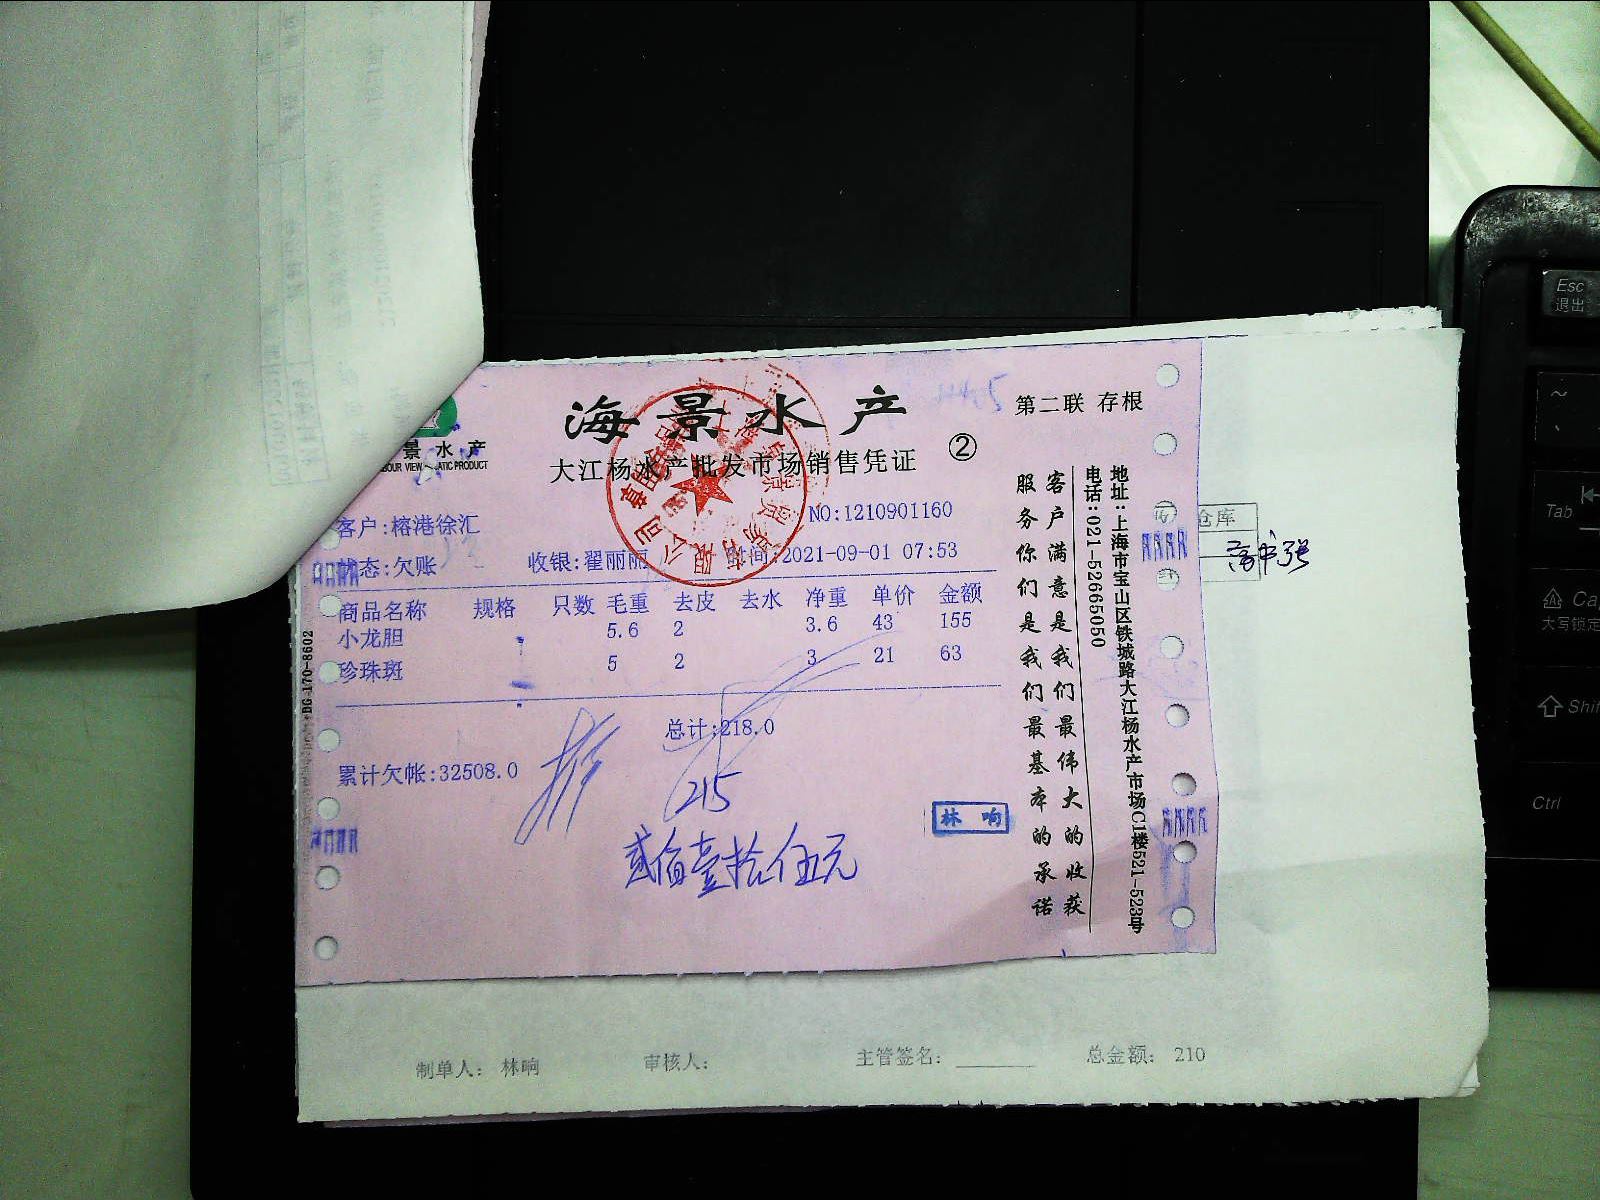 海景水产
第二联 存根
景水产
大江杨水产批发市场销售凭证 ②
客户:榕港徐汇
NO:1210901160
状态:欠账 收银:翟丽丽 时间:2021-09-01 07:53
商品名称 规格 只数 毛重 去皮 去水 净重 单价 金额
小龙胆 5.6 2 3.6 43 155
珍珠斑 5 2 3 21 63
总计:218.0
累计欠帐:32508.0
215
贰佰壹拾伍元
林响
客户满意是我们最伟大的收获
服务你们是我们最基本的承诺
地址:上海市宝山区铁城路大江杨水产市场C1楼521-523号
电话:021-52665050
仓库
制单人: 林响 审核人: 主管签名: 总金额: 210
Esc
退出
Tab
大写锁定
Shif
Ctrl